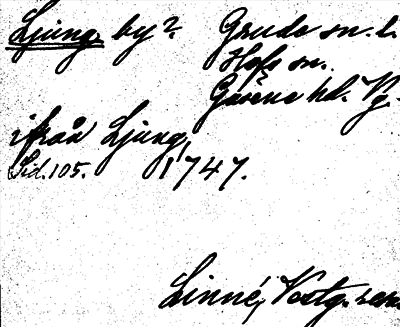 Ljung. by? Grude sn. l.
Hofs sn.
Gäsene hd. Vg.
ifrån Ljung,
Sid. 105. 1747.
Linné, Västg. resa